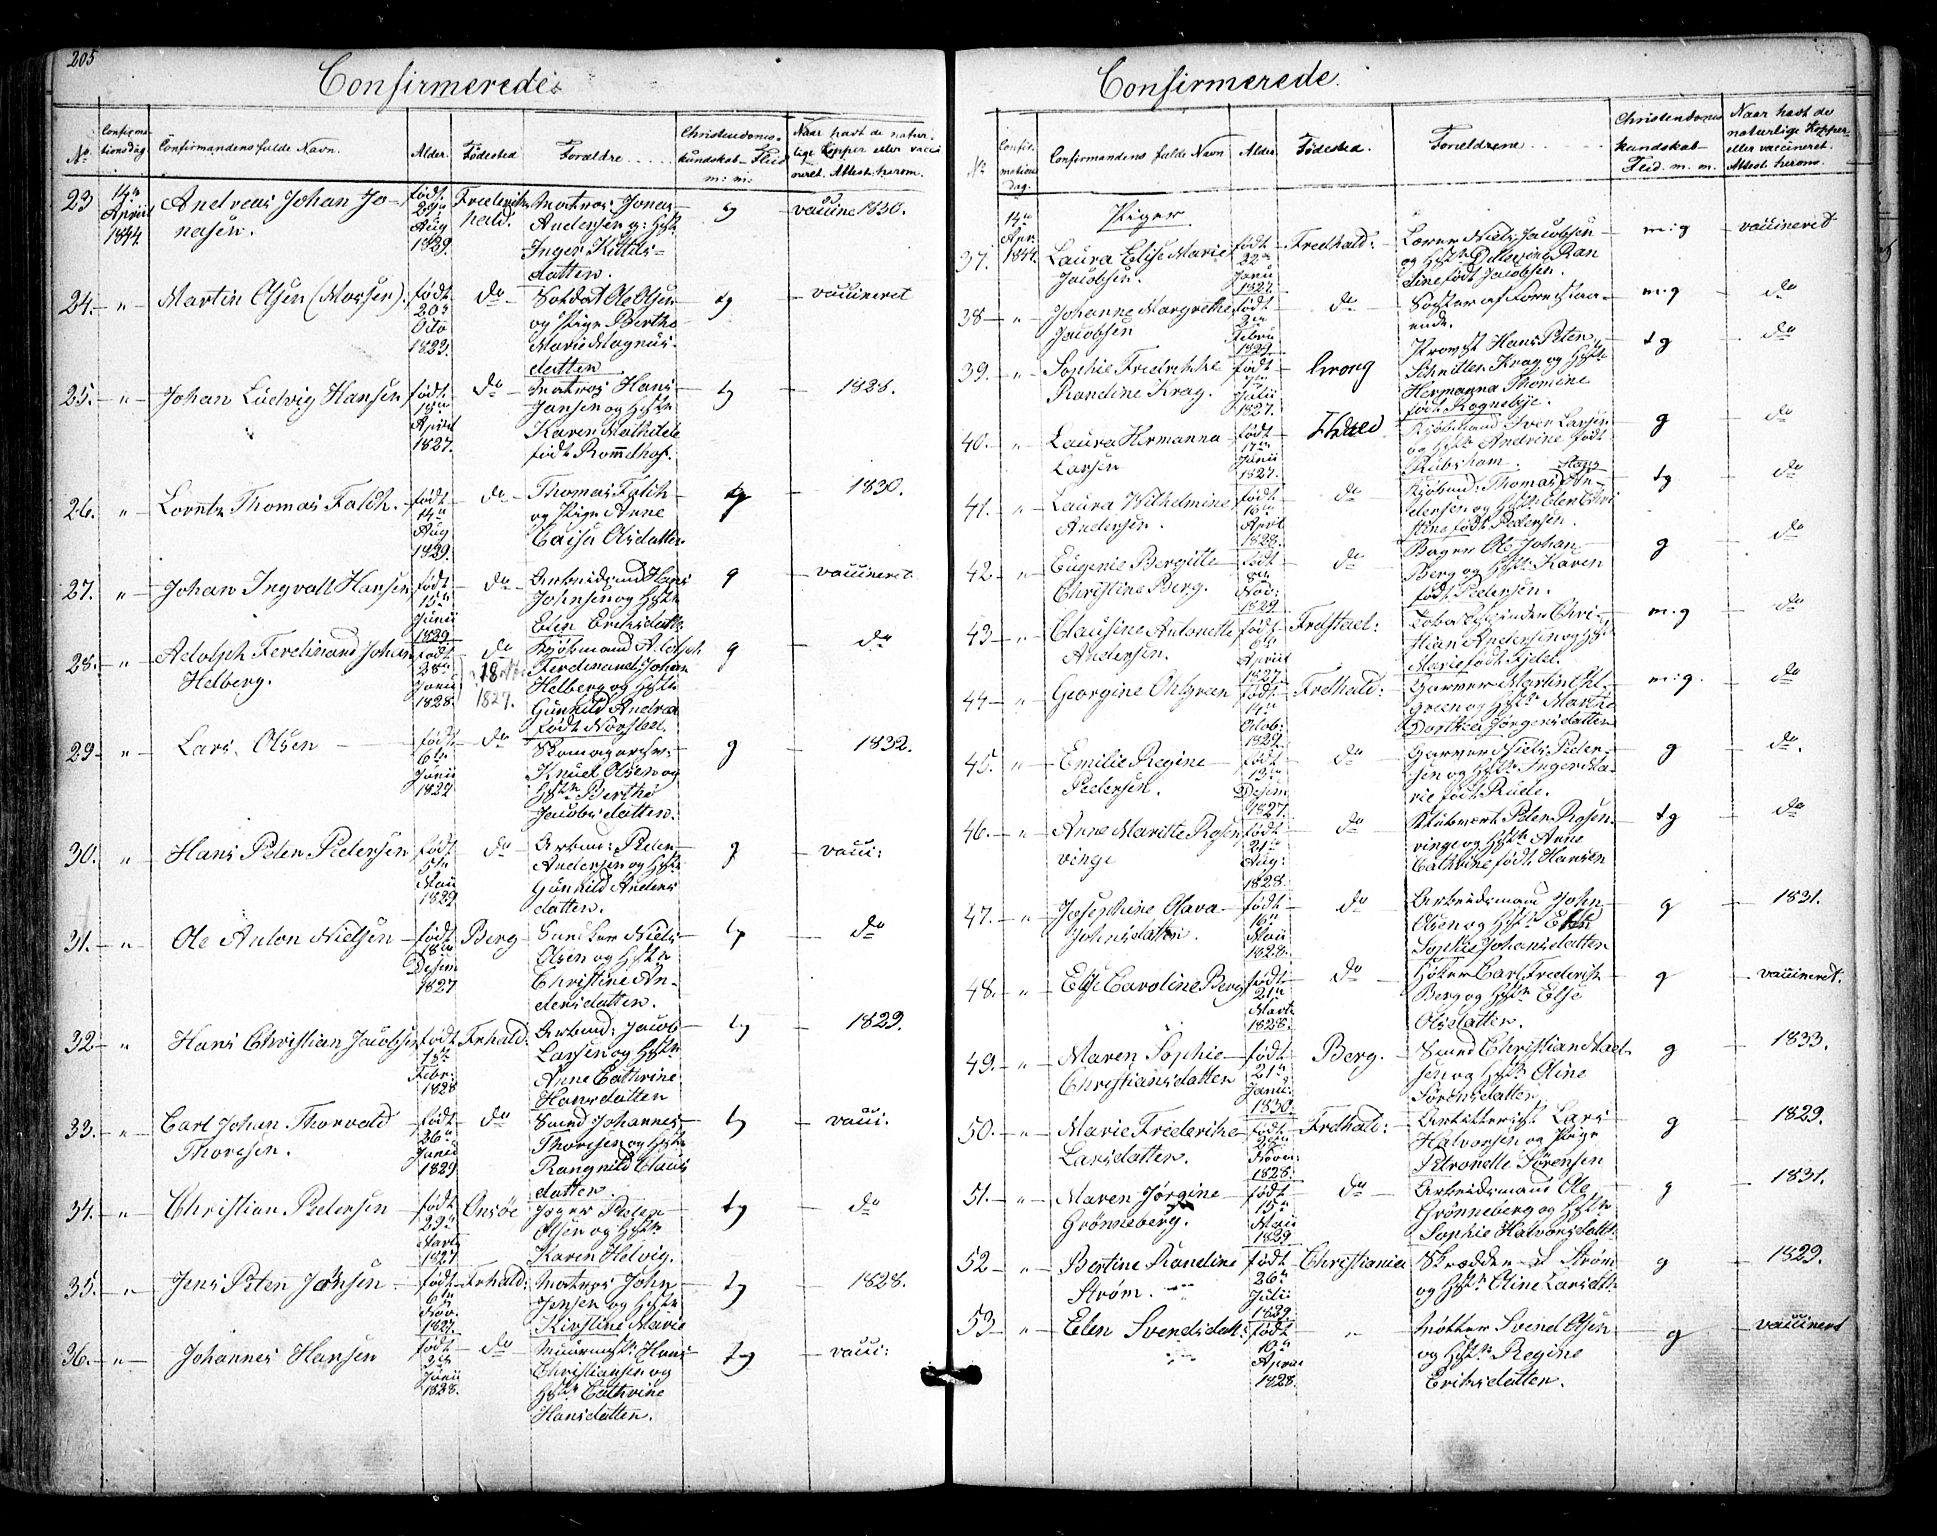 205
Confirmerede
No.
Confirmationsdag
Confirmandens fulde Navn.
Alder.
Fødested
Forældre
Christendoms-
kundskab Flid
m: m:
Naar havt de natur-
lige Kopper eller vacci
neret. Attest herom.
23
14de April 1844.
Andreas Johan Jo-
nasen.
født
29de
Aug
1829.
Frederiks
hald.
Matros Jonas
Andersen og Hst
Inger Kittels-
datter.
g
vaccine 1830.
24. "
Martin Olsen (Mossen).
født
20de
Octo
1823.
do
Soldat Ole Olsen
og Pige Berthe
Marie Magnus-
datter
tg
vaccineret
25. "
Johan Ludvig Hansen
født
18de
April
1827.
do
Matros Hans
Jansen og Hstr
Karen Mathilde
født Rommelhof.
tg
1828.
26. "
Lorentz Thomas Falch.
født
14de
Aug
1829.
do
Thomas Falch
og Pige Anne
Caisa Olsdatter
tg
1830.
27. "
Johan Ingvall Hansen
født
15de
Junii
1829
do
Arbeidsmd Hans
Johnsen og Hstr
Elen Erichsdatt:
g
vaccineret
28. "
Adolph Ferdinand Johan
Helberg.
født
28de
Junii
1828.
do
1827.
Kjøbmand Adolph
Ferdinand Johan
Helberg og Hstr
Gunhild Andrea
født Norsted.
g
do
29 "
Lars Olsen
født
6te
Junii
1829
do
Skomagersv:
Knud Olsen og
Hstr Berthe
Jacobsdatter.
g
1832.
30. "
Hans Peter Pedersen
født
5te
Maii
1829
do
Arbmd: Peder
Andersen og Hstr
Gunhild Anders
datter.
g
vacci:
31. "
Ole Anton Nielsen
født
18de
Desem
1827
Berg
Snedker Niels
Olsen og Hstr
Christine An-
dersdatter.
tg
do
32 "
Hans Christian Jacobsen
født
18de
Febr:
1828
Frhald.
Arbmd: Jacob
Larsen og Hstr
Anne Cathrine
Hansdatter
tg
1829.
33. "
Carl Johan Thorvald
Thoresen.
født
26de
Junii
1829
do
Smed Johannes
Thoresen og Hstr
Rangnild Claus
datter.
tg
vacci.
34. "
Christian Pedersen
født
29de
Marts
1827
Onsøe
Jæger Peder
Olsen og Hstr
Karen Helvig.
tg
do
35. "
Jens Peter Jansen
født
6te
Nov.
1827.
Frhald:
Matros John
Jensen og Hstr
Kirstine Marie
tg
1828.
36. "
Johannes Hansen
født
3de
Junii
1828.
do
Muurmstr: Hans
Christiansen og
Hstr Cathrine
Hansdatter.
tg
vacci:
Confirmerede.
No
Confir-
mations
dag.
Confirmandens fulde Navn
Alder
Fødested.
Forældrene
Christendoms
kundskab
Flid. m. m.
Naar havt de
naturlige Kopper
eller vaccineret.
Attest herom.
Piger
37.
14de Apr. 1844.
Laura Elise Marie
Jacobsen.
født
22de
Janu
1827.
Fredhald:
Lærer Niels Jacobsen
og Hstr
sine født Jacobsen.
m:g
vaccineret
38 "
Johanne Margrethe
Jacobsen
født
2den
Febru
1829
do
Søster af forestaa-
ende.
m:g
do
39. "
Sophie Fredrikke
Randine Krag.
født
7de
Julii
1827.
Grong
Provst Hans Peter
Schnitler Krag og Hstr
Hermanna Thomine
født Rognebye.
tg
do
40. "
Laura Hermanna
Larsen
født
17de
Junii
1827.
Fhald
Kjøbmand Iver Larsen
og Hstr Andrine født
Rubsham.
g
do
41. "
Laura Wilhelmine
Andersen.
født
16de
April
1828.
do
Kjøbmd: Thomas An-
dersen og Hstr: Elen Chri
stine født Pedersen.
tg
do
42 "
Eugenie Bergitte
Christine Berg.
født
8de
Nov:
1829
do
Bager Ole Johan
Berg og Hstr Karen
født Pedersen.
g
do
43 "
Clausine Antonette
Andersen.
født
6te
April
1827
Fredstad:
Tobaksspinder Chri-
stian Andersen og Hstr
Marie født Fjeld.
m:g
do
44 "
Georgine Ohlgren
født
14de
Octob:
1829
Fredhald:
Garver Martin Ohl-
green og Hstr Marthe
Dorthea Jørgensdatter
m:g.
do
45. "
Emilie Regine
Pedersen.
født
13de
Desem
1827.
do
Garver Niels Peder-
sen og Hstr Inger Ma-
rie født Rude.
g
do.
46. "
Anne Mariette Rosen
vinge
født
21de
Aug:
1828.
do
Peter Rosen-
vinge og Hstr Anne
Cathrine født Hansen
tg
do
47. "
Josephine Olava
Johnsdatter.
født
16de
Maii
1828.
do
Arbeidsmand John
Olsen og Hstr Elen
Sophie Johansdatter
g
1831.
48. "
Else Caroline Berg
født
21de
Marts
1828.
do
Høker Carl Frederik
Berg og Hstr Else
Olsdatter.
g
vaccineret.
49. "
Maren Sophie
Christiansdatter
født
21de
Janu:
1830.
Berg.
Smed Christian
sen og Hstr Oline
Sørensdatter.
g
1833.
50. "
Marie Frederikke
Larsdatter.
født
Novem:
1828.
Fredhald:
Artillerist Lars
Halvorsen og Pige
Petronelle Sørensen
g
1829.
51. "
Maren Jørgine
Grønneberg.
født
15de
Maii
1829
do
Arbeidsmand Ole
Grønneberg og Hstr
Sophie Halvorsdatt:
g
1831.
52 "
Bertine Randine
Strøm.
født
26de
Juli:
1829
Christiania
Skrædder Strøm
og Hstr Oline Larsdtr
g
1829.
53 "
Elen Svendsdatt:
født
10de
April
1828.
"
Møller Svend Olsen
og Hstr Regine
Eriksdatter.
g
vaccineret